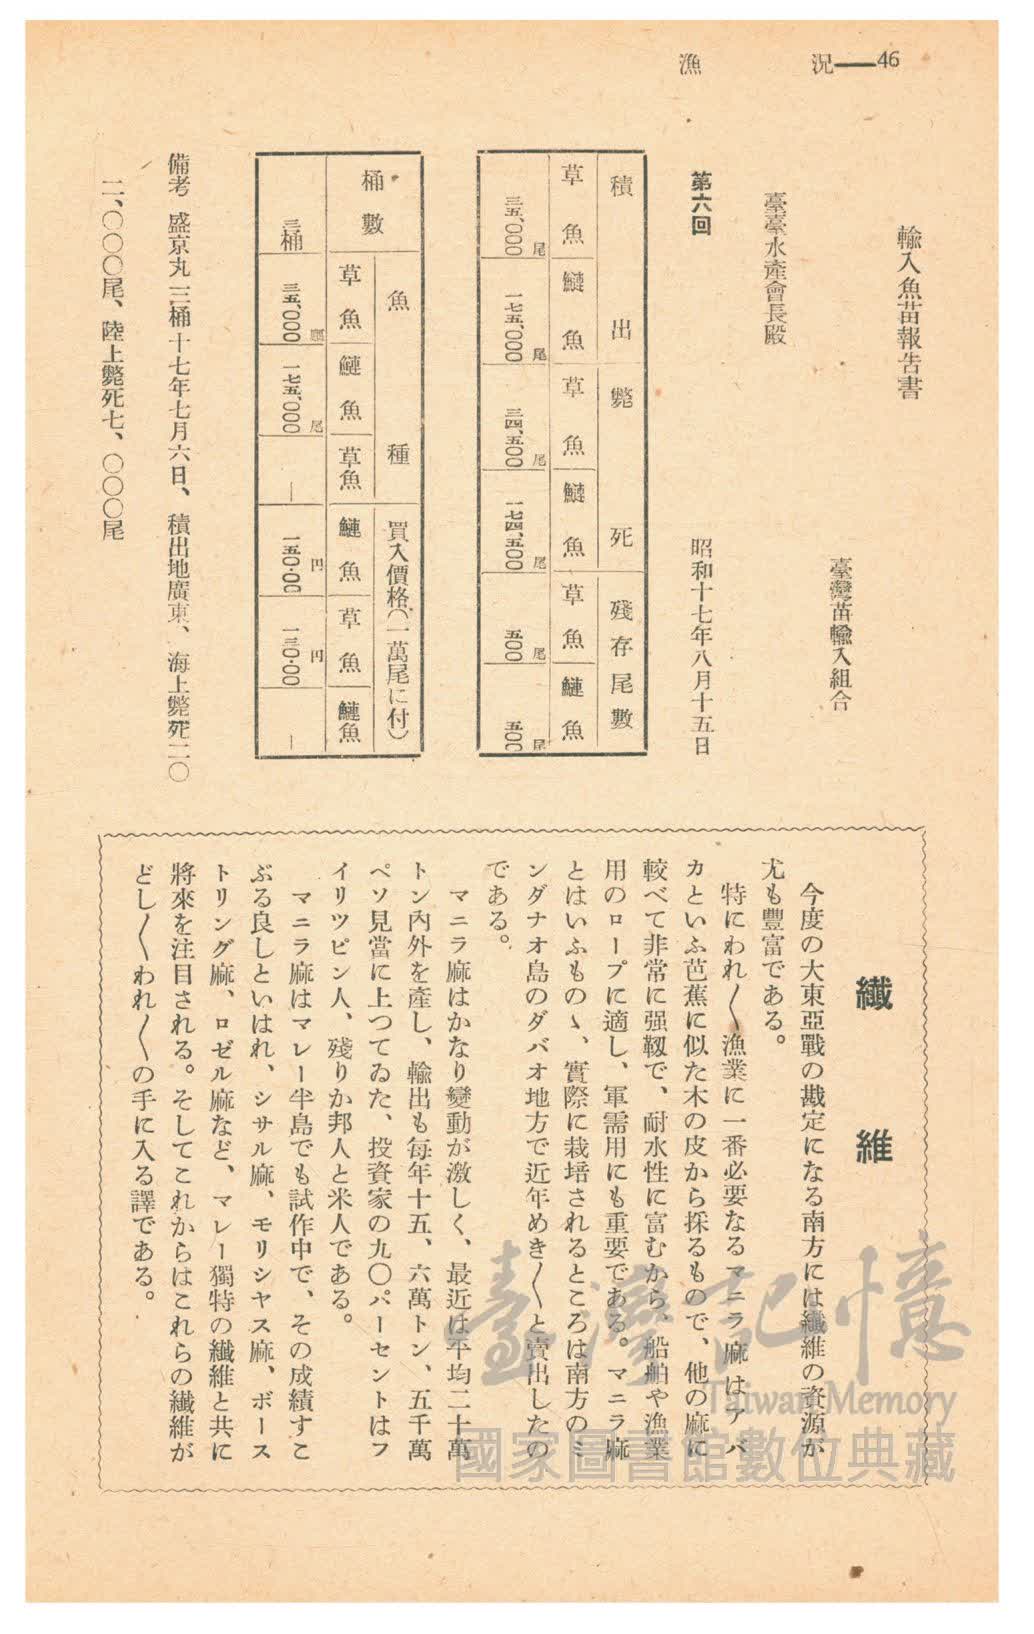 漁　況——46
輸入魚苗報告書
臺灣苗輸入組合
臺臺水產會長殿
第六回　昭和十七年八月十五日
積出　斃死　殘存尾數
草魚　鰱魚　草魚　鰱魚　草魚　鰱魚
三五、〇〇〇尾　一七五、〇〇〇尾　三四、五〇〇尾　一七四、五〇〇尾　五〇〇尾　五〇〇尾
桶數　魚種　買入價格(一萬尾に付)
草魚　鰱魚　草魚　鰱魚　草魚　鰱魚
三桶　三五、〇〇〇　一七五、〇〇〇尾　—　一五〇・〇〇円　一三〇・〇〇円　—
備考　盛京丸三桶十七年七月六日、積出地廣東、海上斃死二〇
二、〇〇〇尾、陸上斃死七、〇〇〇尾
纖維
今度の大東亞戰の勘定になる南方には纖維の資源が
尤も豐富である。
特にわれ〱漁業に一番必要なるマニラ麻はアバ
カといふ芭蕉に似た木の皮から採るもので、他の麻に
較べて非常に强靱で、耐水性に富むから、船舶や漁業
用のロープに適し、軍需用にも重要である。マニラ麻
とはいふものゝ、實際に栽培されるところは南方のミ
ンダナオ島のダバオ地方で近年めき〱と賣出したの
である。
マニラ麻はかなり變動が激しく、最近は平均二十萬
トン內外を產し、輸出も每年十五、六萬トン、五千萬
ペソ見當に上つてゐた、投資家の九〇パーセントはフ
イリツピン人、殘りか邦人と米人である。
マニラ麻はマレー半島でも試作中で、その成績すこ
ぶる良しといはれ、シサル麻、モリシヤス麻、ボース
トリング麻、ロゼル麻など、マレー獨特の纖維と共に
將來を注目される。そしてこれからはこれらの纖維が
どし〱われ〱の手に入る譯である。
臺灣記憶
Taiwan Memory
國家圖書館數位典藏